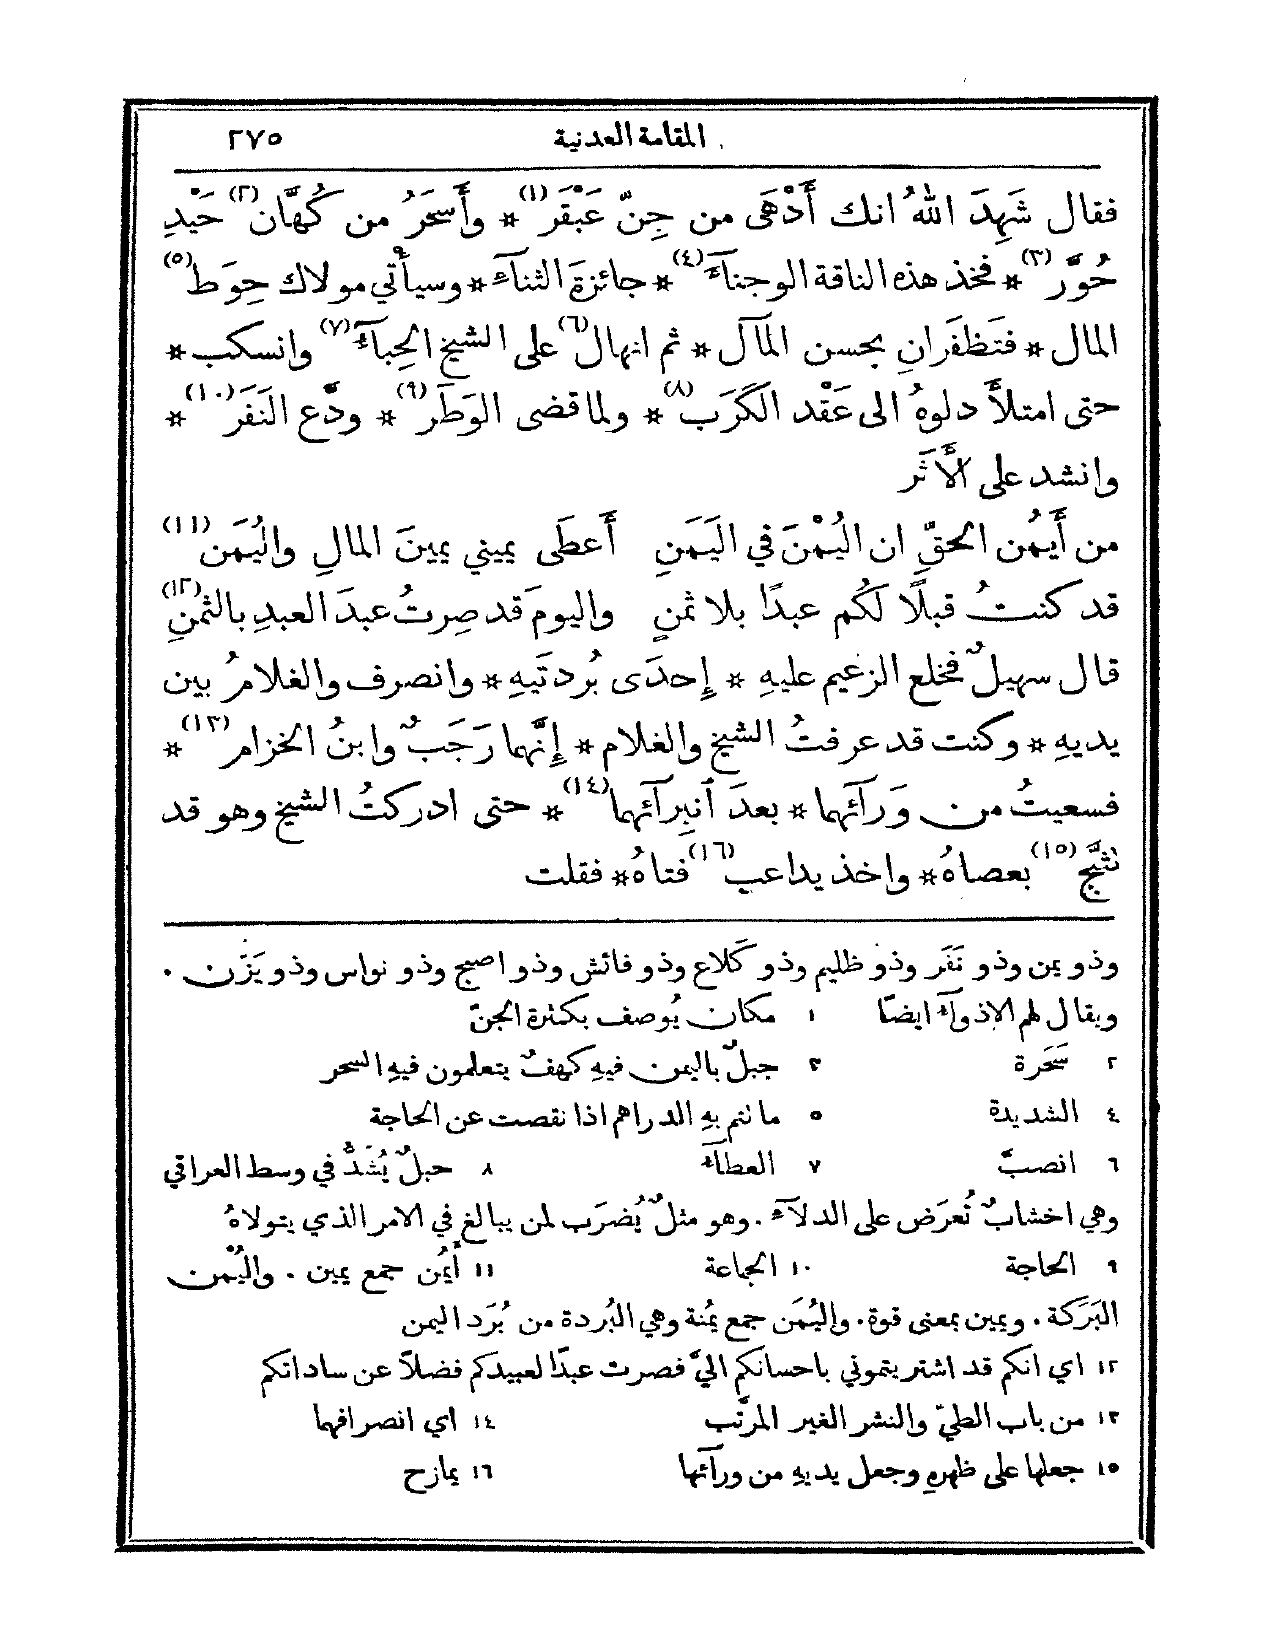 المقامة العدنية ٢٧٥
فقال شَهِدَ اللهُ انك أَدْهَى من جِنّ عَبْقَر(١) * وأَسحَرُ من كُهَّان(٢) حَيْدِ
حُوَّر(٣) * فخذ هذه الناقة الوجنآءَ(٤) * جائزةَ الثنآءِ * وسيأْتي مولاك حِوَط(٥)
المال * فتَظفَرانِ بحسن المآل * ثم انهال(٦) على الشيخ الحِبآءُ(٧) وانسكب *
حتى امتلأَ دلوهُ الى عَقْد الكَرَب(٨) * ولما قضى الوَطَر(٩) * ودَّع النَفَر(١٠) *
وانشد على الأَثَر
من أَيمُن الحقِّ ان اليُمْنَ في اليَمَنِ أَعطَى يميني يمينَ المالِ واليُمَنِ(١١)
قد كنتُ قبلًا لَكُم عبدًا بلا ثمنٍ واليومَ قد صِرتُ عبدَ العبدِ بالثمنِ(١٢)
قال سهيلٌ فخلع الزعيم عليهِ * إِحدَى بُردتَيهِ * وانصرف والغلامُ بين
يديهِ * وكنت قد عرفتُ الشيخ والغلام * إِنَّهما رَجَبٌ وابنُ الخزام(١٣) *
فسعيتُ من وَرآئهما * بعدَ انبِرآئهما(١٤) * حتى ادركتُ الشيخ وهو قد
تثجَّ(١٥) بعصاهُ * واخذ يداعب(١٦) فتاهُ * فقلت
وذو يمن وذو نَفَر وذو ظليم وذو كَلاع وذو فائش وذو اصبح وذو نواس وذو يَزَن .
ويقال لهم الاذوآءُ ايضًا ١ مكان يُوصف بكثرة الجنّ
٢ سَحَرة ٣ جبلٌ باليمن فيهِ كهفٌ يتعلمون فيهِ السحر
٤ الشديدة ٥ ما تتم بهِ الدراهم اذا نقصت عن الحاجة
٦ انصبَّ ٧ العطآء ٨ حبلٌ يُشَدُّ في وسط العراقي
وهي اخشابٌ تُعرَض على الدلآءِ . وهو مثلٌ يُضرَب لمن يبالغ في الامر الذي يتولاهُ
٩ الحاجة ١٠ الجماعة ١١ أَيمُن جمع يمين . واليُمْن
البَرَكة . ويمين بمعنى قوة . واليُمَن جمع يُمنة وهي البُردة من بُرَد اليمن
١٢ اي انكم قد اشتريتموني باحسانكم اليَّ فصرت عبدًا لعبيدكم فضلًا عن ساداتكم
١٣ من باب الطيّ والنشر الغير المرتَّب ١٤ اي انصرافهما
١٥ جعلها على ظهرهِ وجعل يديهِ من ورآئها ١٦ يمازح